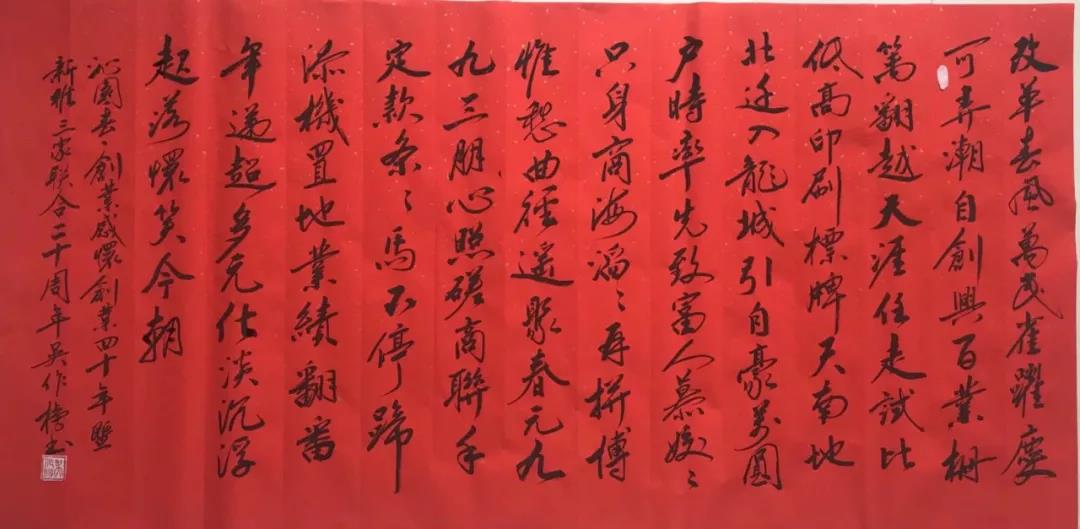 改革春風萬民雀躍處
可弄潮自創興百業柵
篱翻越天涯任走試比
低高印刷標牌天南地
北迁入龍城引自豪萬圓
户時率先致富人慕姣〻
只身商海滔〻再拼博
惟愁曲徑遥聚春元九
九三朋心照磋商聯手
定款条〻馬不停蹄
添機置地業績翻番
年遞超多元化淡沉浮
起落懷笑今朝
沁園春、創業感懷創業四十年暨
新雅三家联合二十周年吴作榜书